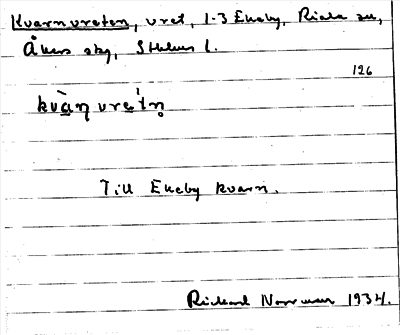 Kvarnvreten, vret, 1-3 Ekeby, Riala sn,
Åkers skg, Sthlms l.
126
kvàṇvrét̥n̥
Till Ekeby kvarn.
Rickard 1934.